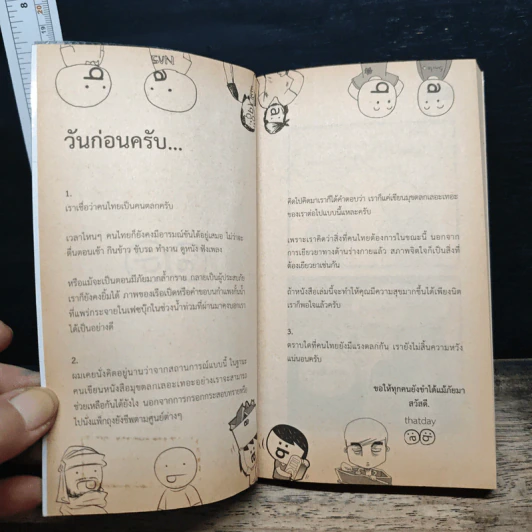 วันก่อนครับ...
1.
เราเชื่อว่าคนไทยเป็นคนตลกครับ
เวลาไหนๆ คนไทยก็ยังคงมีอารมณ์ขันได้อยู่เสมอ ไม่ว่าจะ
ตื่นตอนเช้า กินข้าว ขับรถ ทำงาน ดูหนัง ฟังเพลง
หรือแม้จะเป็นตอนมีภัยมากล้ำกราย กลายเป็นผู้ประสบภัย
เราก็ยังคงยิ้มได้ ภาพของเรือเป็ดหรือคำขอบนกำแพงกั้นน้ำ
ที่แพร่กระจายในเฟซบุ๊กในช่วงน้ำท่วมที่ผ่านมาคงบอกเรา
ได้เป็นอย่างดี
2.
ผมเคยนั่งคิดอยู่นานว่าจากสถานการณ์แบบนี้ ในฐานะ
คนเขียนหนังสือมุขตลกเลอะเทอะอย่างเราจะสามารถ
ช่วยเหลือกันได้ยังไง นอกจากการกรอกกระสอบทรายหรือ
ไปนั่งแพ็กถุงยังชีพตามศูนย์ต่างๆ
คิดไปคิดมาเราก็ได้คำตอบว่า เราก็แค่เขียนมุขตลกเลอะเทอะ
ของเราต่อไปแบบนี้แหละครับ
เพราะเราคิดว่าสิ่งที่คนไทยต้องการในขณะนี้ นอกจาก
การเยียวยาทางด้านร่างกายแล้ว สภาพจิตใจก็เป็นสิ่งที่
ต้องเยียวยาเช่นกัน
ถ้าหนังสือเล่มนี้จะทำให้คุณมีความสุขมากขึ้นได้เพียงนิด
เราก็พอใจแล้วครับ
3.
ตราบใดที่คนไทยยังมีแรงตลกกัน เรายังไม่สิ้นความหวัง
แน่นอนครับ
ขอให้ทุกคนยังขำได้แม้ภัยมา
สวัสดี.
thatday